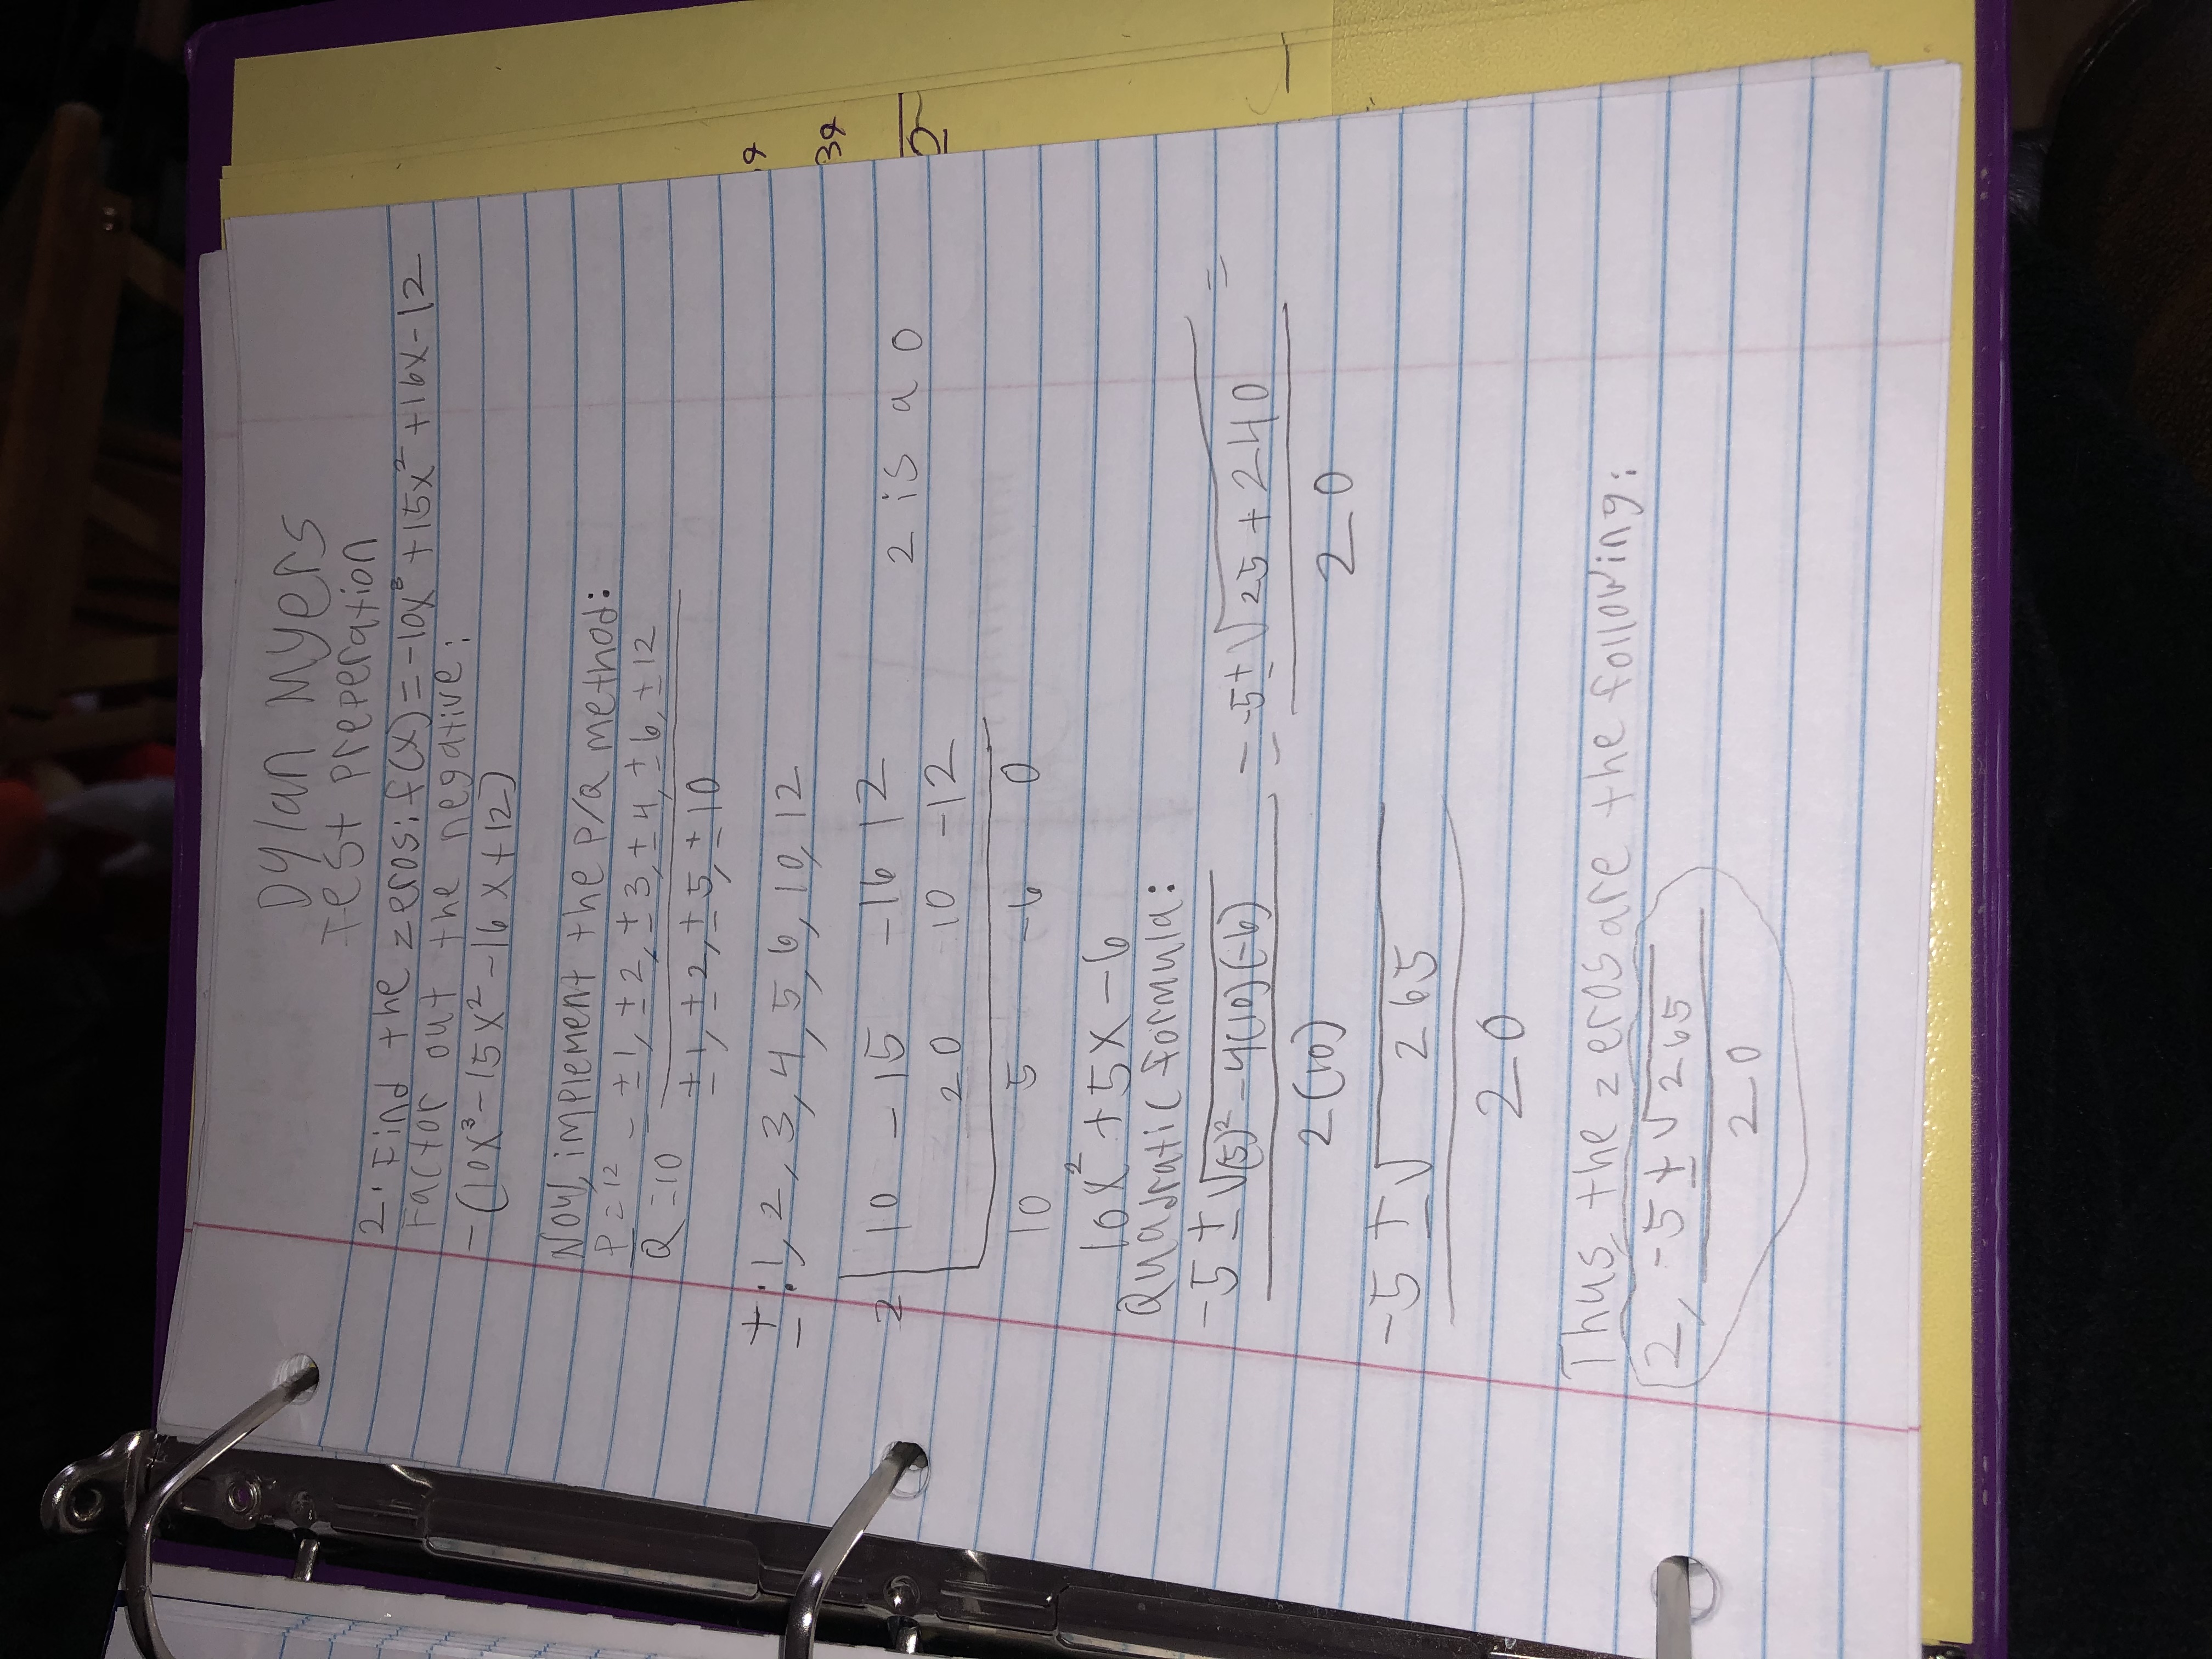 Dylan Myers
Test Preperation
2. Find the zeros: f(x) = -10x³ + 15x² + 16x - 12
Factor out the negative:
-(10x³ - 15x² - 16x + 12)
Now, implement the P/Q method:
P = 12 - ±1, ±2, ±3, ±4, ±6, ±12
Q = 10 ±1, ±2, ±5, ±10
±: 1, 2, 3, 4, 5, 6, 10, 12
2 | 10 -15 -16 12 2 is a 0
20 10 -12
10 5 -6 0
10x² + 5x - 6
Quadratic formula:
-5 ± √(5)² - 4(10)(-6) = -5 ± √25 + 240 =
2(10) 20
-5 ± √265
20
Thus, the zeros are the following:
2, -5 ± √265
20